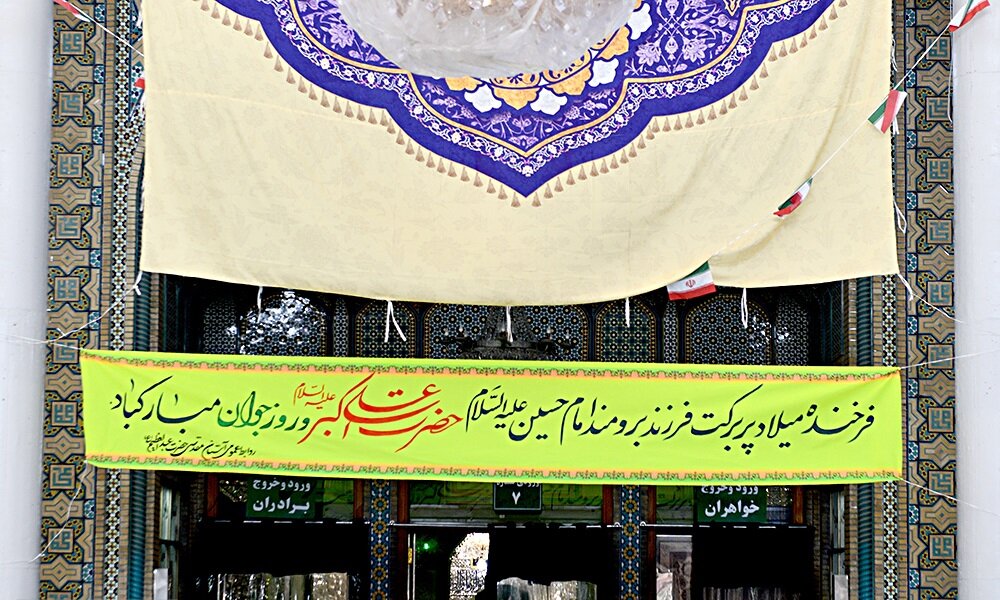 فرخنده میلاد پر برکت فرزند برومند امام حسین علیه السلام حضرت علی اکبر علیه السلام و روز جوان مبارکباد
روابط عمومی آستان مقدس حضرت عبدالعظیم
ورود و خروج
برادران
۷
ورود و خروج
خواهران